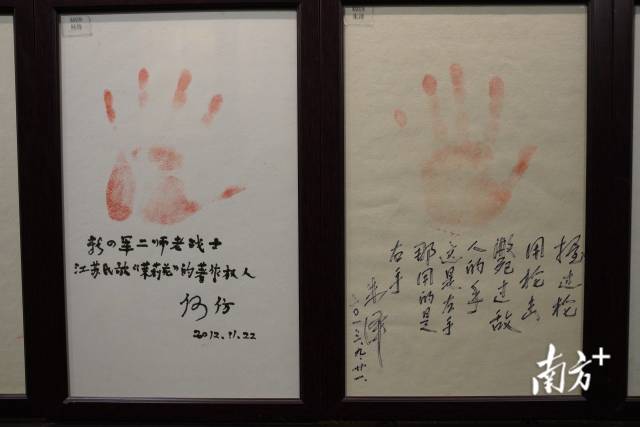 新四军二师老战士
江苏民歌《茉莉花》的著作权人
何仿
2012.11.22
握过枪
用枪击
毙过敌
人的手
这是左手
那用的是
右手
二〇一三.九.廿一.
南方+